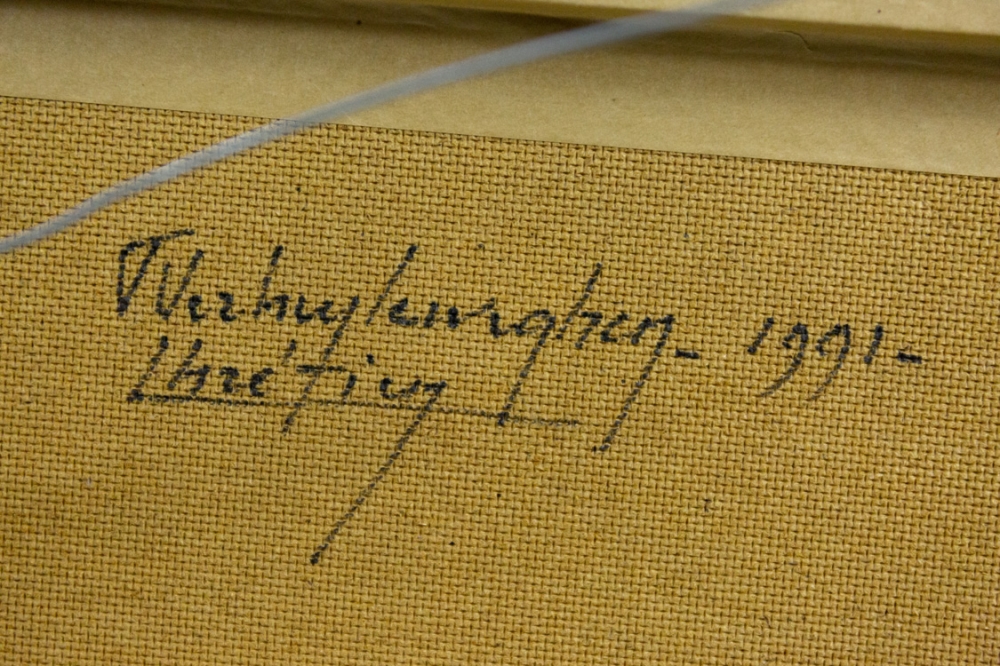 Verheyleweghen - 1991 -
Chrétien